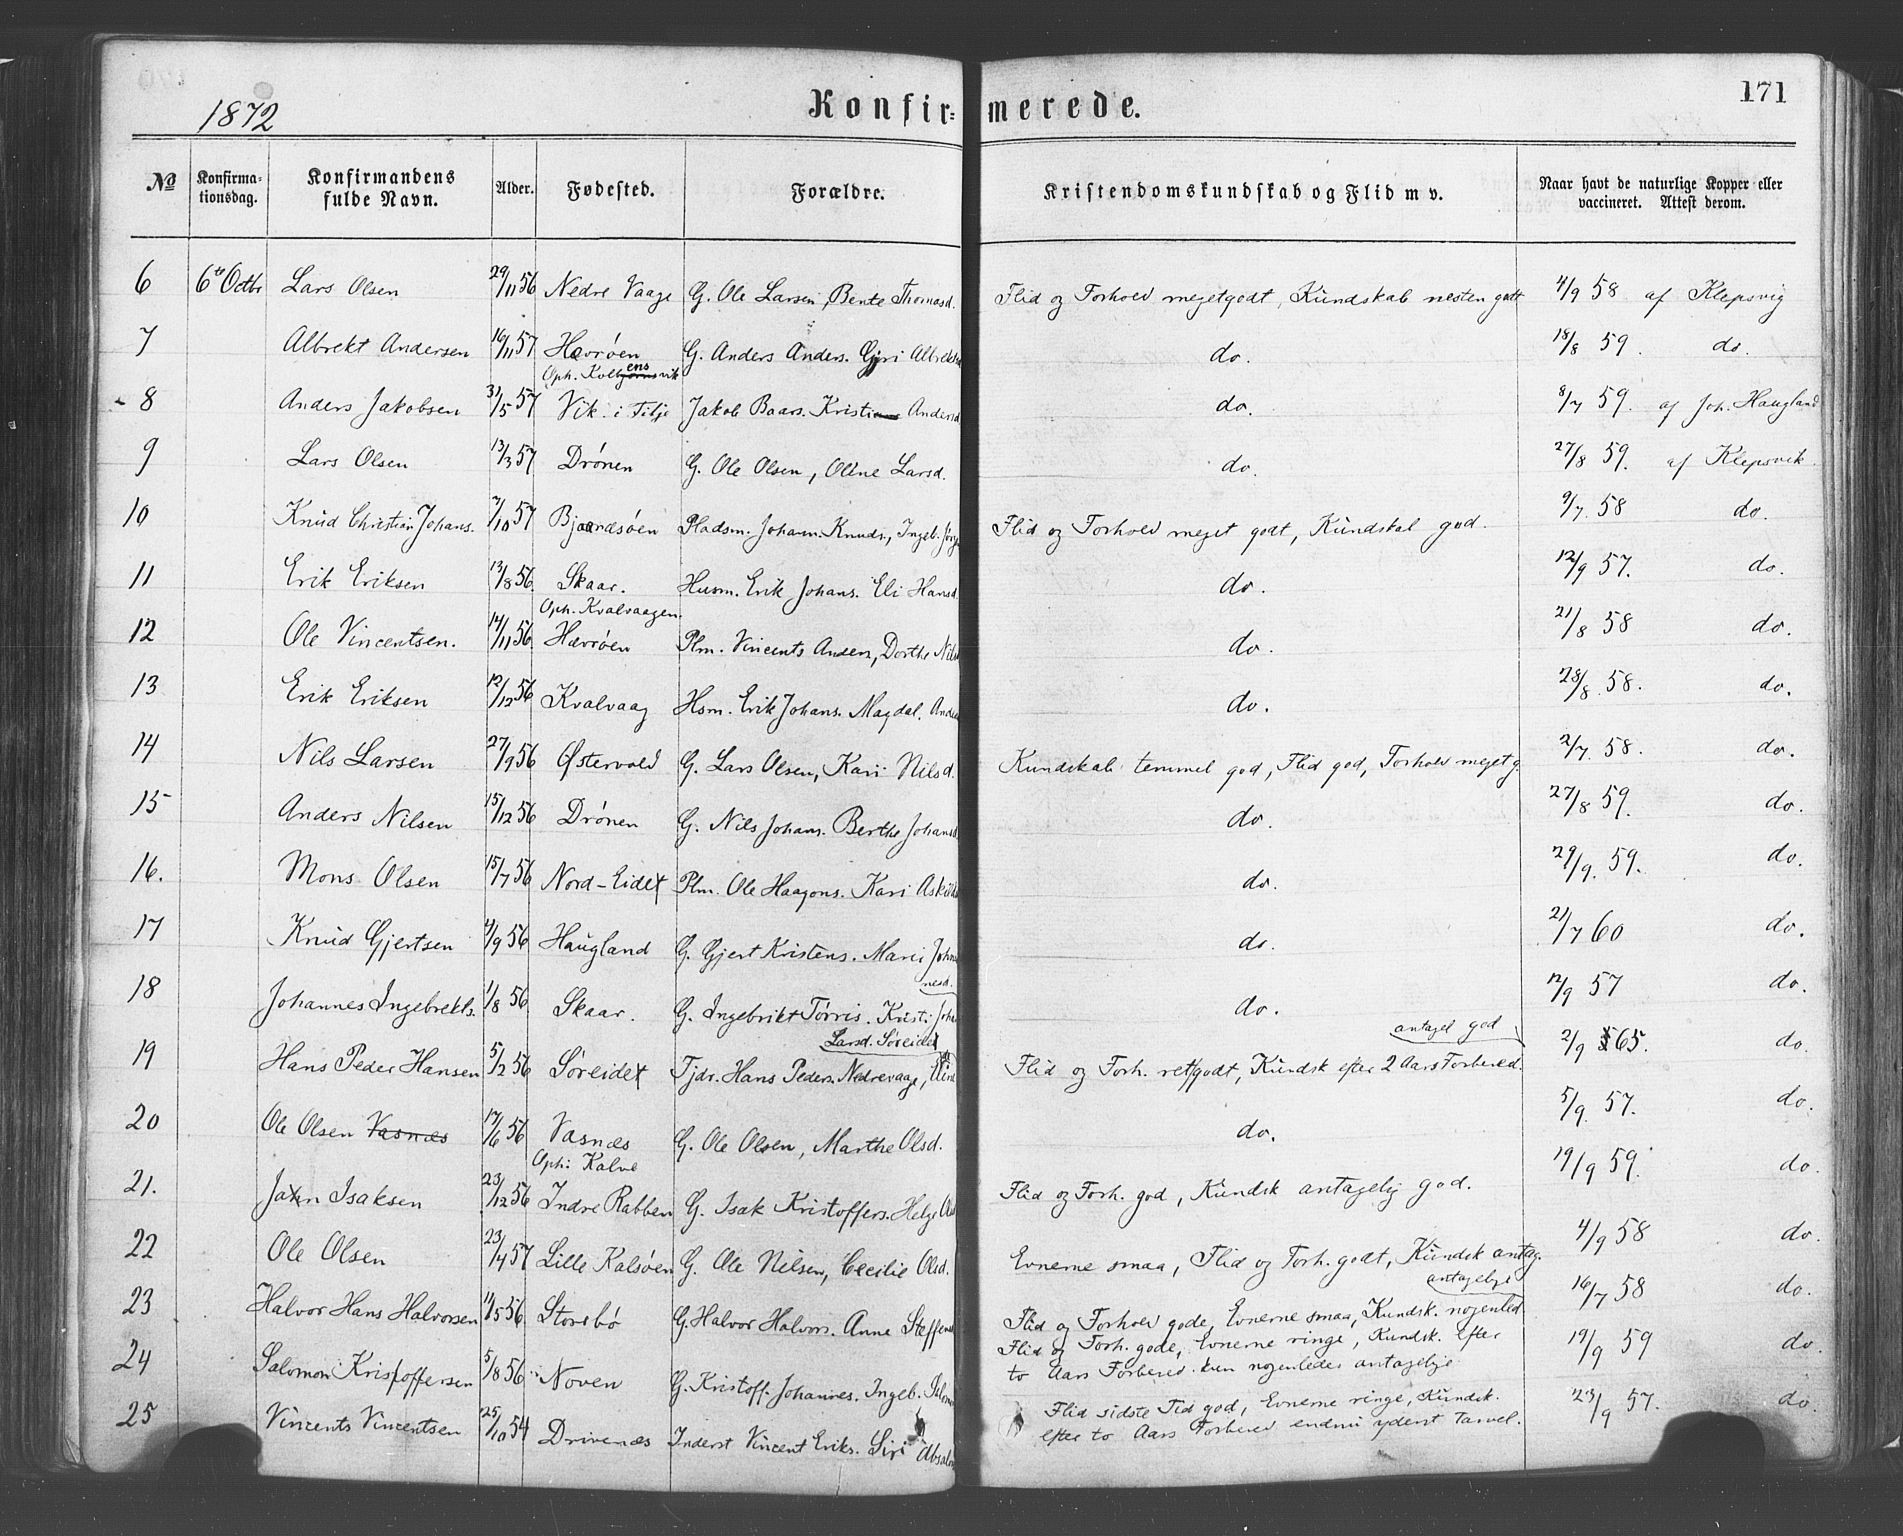 1872 Konfir= merede. 171
№ Konfirma-tionsdag. Konfirmandens fulde Navn. Alder. Fødested. Forældre. Kristendomskundskab og Flid m v. Naar havt de naturlige Kopper eller vaccineret. Attest derom.
6 6te Octbr Lars Olsen 29/11 56 Nedre Vaage G. Ole Larsen, Bente Thomasd. Flid og Forhold megetgodt, Kundskab nesten godt 4/9 58 af Klepsvig
7 Albrekt Andersen 16/11 57 Hevrøen G. Anders Anders. Gjri Albrektsd do. 18/8 59. do.
Oph. Kolbensvik
8 Anders Jakobsen 31/5 57 Vik i Tilje Jakob Baars. Kristi Andersd do. 8/7 59. af Joh. Haugland
9 Lars Olsen 13/3 57 Drönen G. Ole Olsen, Oline Larsd. do. 27/8 59. af Klepsvik.
10 Knud Christian Johans. 7/10 57 Bjaanæsøen Pladsm. Johann. Knuds, Ingeb. Jörg Flid og Forhold meget godt, Kundskab god. 9/7. 58 do.
11 Erik Eriksen 13/8 56. Skaar. Husm. Erik Johans. Eli Hansd. do. 12/9 57. do.
Oph. Kvalvaagen.
12 Ole Vincentsen. 14/11 56. Hævröen Plm. Vincents Anders, Dorthe Nils do. 21/8 58 do.
13 Erik Eriksen 12/12 56 Kvalvaag Hsm. Erik Johans. Magdal. Ande do. 28/8. 58. do.
14 Nils Larsen 27/9 56 Østervold G. Lars Olsen, Kari Nilsd. Kundskab temmel god, Flid god, Forhold meget g. 2/7. 58. do.
15 Anders Nilsen 15/12 56 Drönen G. Nils Johans. Berthe Johansd do. 27/8 59. do.
16. Mons Olsen 15/7 56 Nord-Eidet Plm. Ole Haagons. Kari Askild do. 29/9. 59. do.
17 Knud Gjertsen 4/9 56 Haugland G. Gjert Kristens. Mari Johan do. 21/7 60 do.
nesd.
18 Johannes Ingebrekts. 1/8 56 Skaar. G. Ingebrikt Törris. Kristi Joha do. 12/9 57 do.
Larsd. Søreidet antagel god
19 Hans Peder Hansen 5/2 56 Søreidet Tjdr. Hans Peders. Nedrevaage, Flid og Forh. retgodt, Kundsk efter 2 Aars Forbered. 2/9 65. do.
20 Ole Olsen Vasnæs 17/6 56 Vasnæs G. Ole Olsen, Marthe Olsd. do. 5/9. 57. do.
Oph: Kalve
21. Jahn Isaksen 23/12 56 Indre Rabben G. Isak Kristoffers. Helge Flid og Forh. god, Kundsk antagelig god. 19/9 59. do.
22 Ole Olsen 23/4 57 Lille Kalsøen G. Ole Nilsen, Cecilie Olsd. Evnerne smaa, Flid og Forh. godt, Kundsk antag. 4/9 58 do.
antagelige
23 Halvor Hans Halvorsen 11/5 56. Storebø G. Halvor Halvors. Anne Steffens Flid og Forhold gode, Evnerne smaa, Kundsk. nogenled 16/7 58 do.
24 Salomon Kristoffersen 5/8 56 Noven G. Kristoff. Johannes. Ingeb. Salom Flid og Forh. gode, Evnerne ringe, Kundsk. efter 19/9 59 do.
to Aars Forbered. kun nogenledes antagelige
25 Vincents Vincentsen 25/10 54 Drivenæs Inderst Vincent Eriks. Siri Absalo Flid sidste Tid god, Evnerne ringe, Kundsk. 23/9 57. do.
efter to Aars Forbered endnu yderst tarvel.